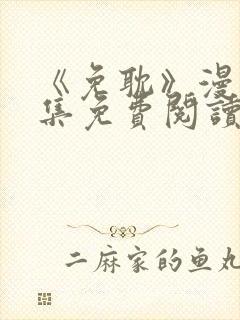 《免耽》漫
集免費閱讀
二麻家的鱼丸